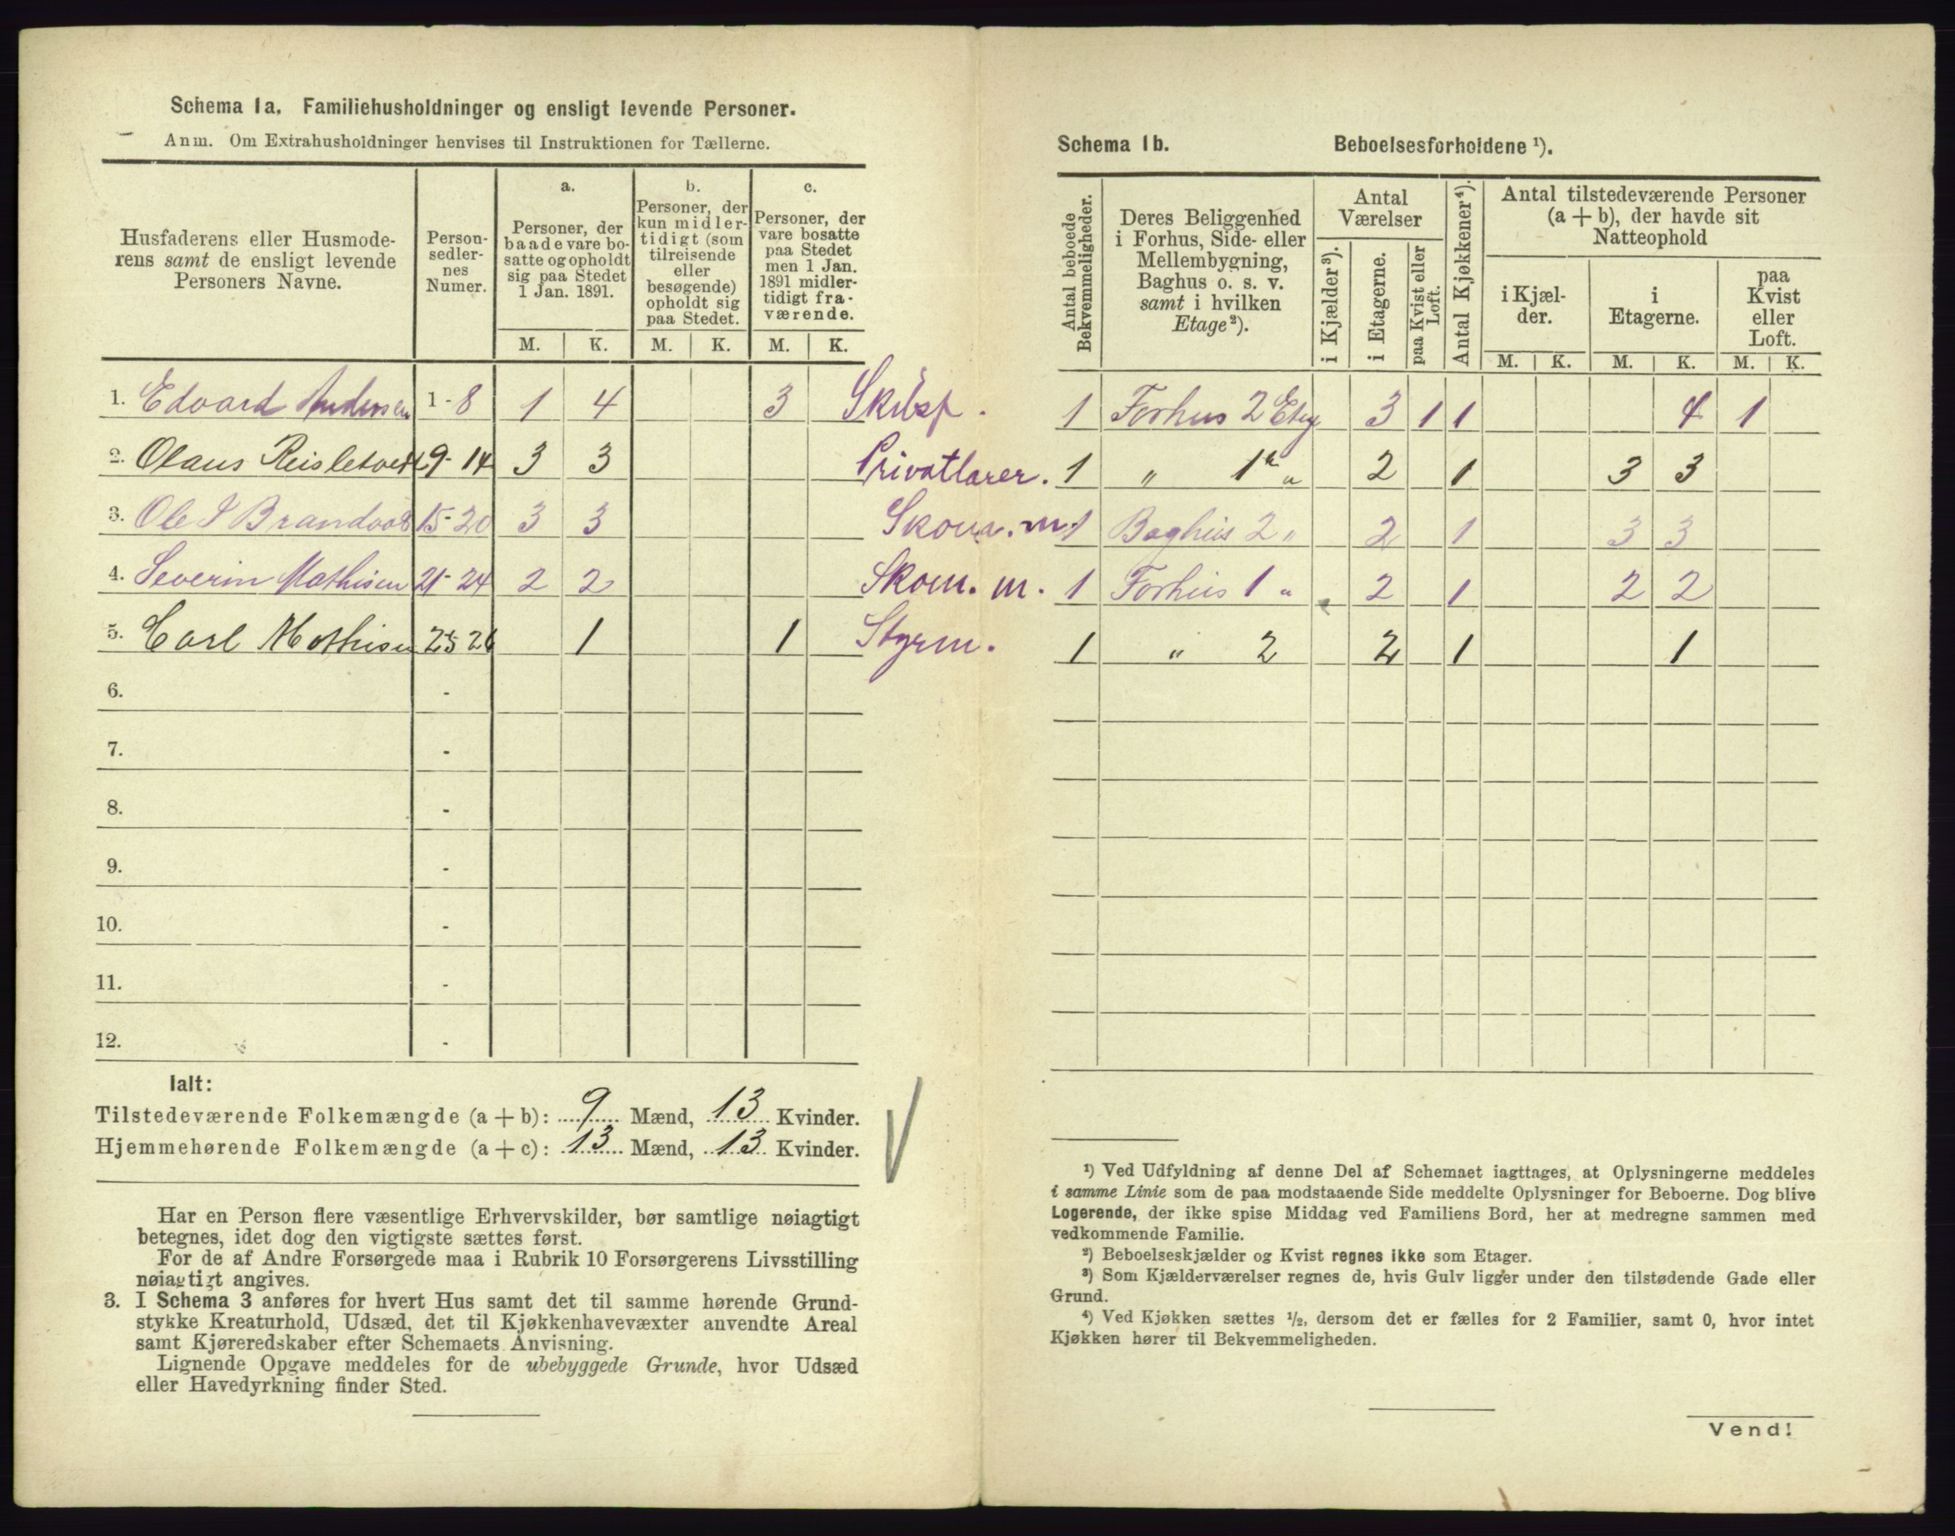 Schema 1a. Familiehusholdninger og ensligt levende Personer.
Anm. Om Extrahusholdninger henvises til Instruktionen for Tællerne.
Husfaderens eller Husmoderens samt de ensligt levende Personers Navne.
Personsedlernes Numer.
a.
Personer, der baade vare bosatte og opholdt sig paa Stedet 1 Jan. 1891.
b.
Personer, der kun midlertidigt (som tilreisende eller besøgende) opholdt sig paa Stedet.
c.
Personer, der vare bosatte paa Stedet men 1 Jan. 1891 midlertidigt fraværende.
M. K. M. K. M. K.
1. Edvard Andersen 1-8 1 4 3 Skibsf.
2. Olaus 9-14 3 3 Privatlærer.
3. Ole 15-20 3 3 Skom. m.
4. Severin Mathisen 21-24 2 2 Skom. m.
5. Carl Mathisen 25-26 1 1 Styrm.
6. -
7. -
8. -
9. -
10. -
11. -
12. -
Ialt:
Tilstedeværende Folkemængde (a + b): 9 Mænd, 13 Kvinder.
Hjemmehørende Folkemængde (a + c): 13 Mænd, 13 Kvinder.
Har en Person flere væsentlige Erhvervskilder, bør samtlige nøiagtigt
betegnes, idet dog den vigtigste sættes først.
For de af Andre Forsørgede maa i Rubrik 10 Forsørgerens Livsstilling
nøiagtigt angives.
3. I Schema 3 anføres for hvert Hus samt det til samme hørende Grund-
stykke Kreaturhold, Udsæd, det til Kjøkkenhavevæxter anvendte Areal
samt Kjøreredskaber efter Schemaets Anvisning.
Lignende Opgave meddeles for de ubebyggede Grunde, hvor Udsæd
eller Havedyrkning finder Sted.
Schema 1b. Beboelsesforholdene ¹).
Antal beboede Bekvemmeligheder.
Deres Beliggenhed i Forhus, Side- eller Mellembygning, Baghus o. s. v. samt i hvilken Etage²).
Antal Værelser
i Kjælder³).
i Etagerne.
paa Kvist eller Loft.
Antal Kjøkkener⁴).
Antal tilstedeværende Personer (a + b), der havde sit Natteophold
i Kjælder.
i Etagerne.
paa Kvist eller Loft.
M. K. M. K. M. K.
1 Forhus 2 Etg 3 1 1 4 1
1 „ 1 „ 2 1 3 3
1 Baghus 2 „ 2 1 3 3
1 Forhus 1 „ 2 1 2 2
1 „ 2 2 1 1
¹) Ved Udfyldning af denne Del af Schemaet iagttages, at Oplysningerne meddeles
i samme Linie som de paa modstaaende Side meddelte Oplysninger for Beboerne. Dog blive
Logerende, der ikke spise Middag ved Familiens Bord, her at medregne sammen med
vedkommende Familie.
²) Beboelseskjælder og Kvist regnes ikke som Etager.
³) Som Kjælderværelser regnes de, hvis Gulv ligger under den tilstødende Gade eller
Grund.
⁴) Ved Kjøkken sættes ½, dersom det er fælles for 2 Familier, samt 0, hvor intet
Kjøkken hører til Bekvemmeligheden.
Vend!